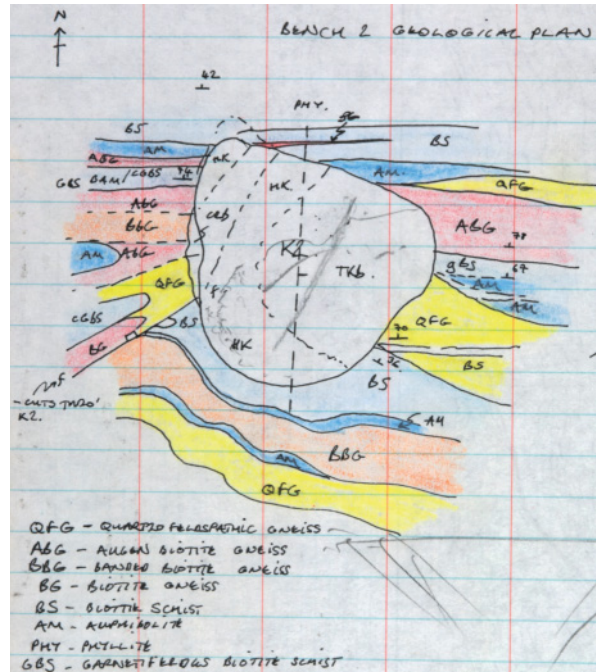 N
BENCH 2 GEOLOGICAL PLAN
42
PHY.
BS
BS
AM
ABG
HK
AM
QFG
GBS BAM/CGBS 74
HK.
ABG
ABG
BBG
K2
78
AM ABG
TKb.
gBS 67
AM
AM
QFG
QFG
70
CGBS
BS
HK
BG
BS
BS
-CUTS THRO'
K2.
AM
BBG
AM
QFG
QFG - QUARTZO FELDSPATHIC GNEISS
ABG - AUGEN BIOTITE GNEISS
BBG - BANDED BIOTITE GNEISS
BG - BIOTITE GNEISS
BS - BIOTITE SCHIST
AM - AMPHIBOLITE
PHY - PHYLLITE
GBS - GARNETIFEROUS BIOTITE SCHIST